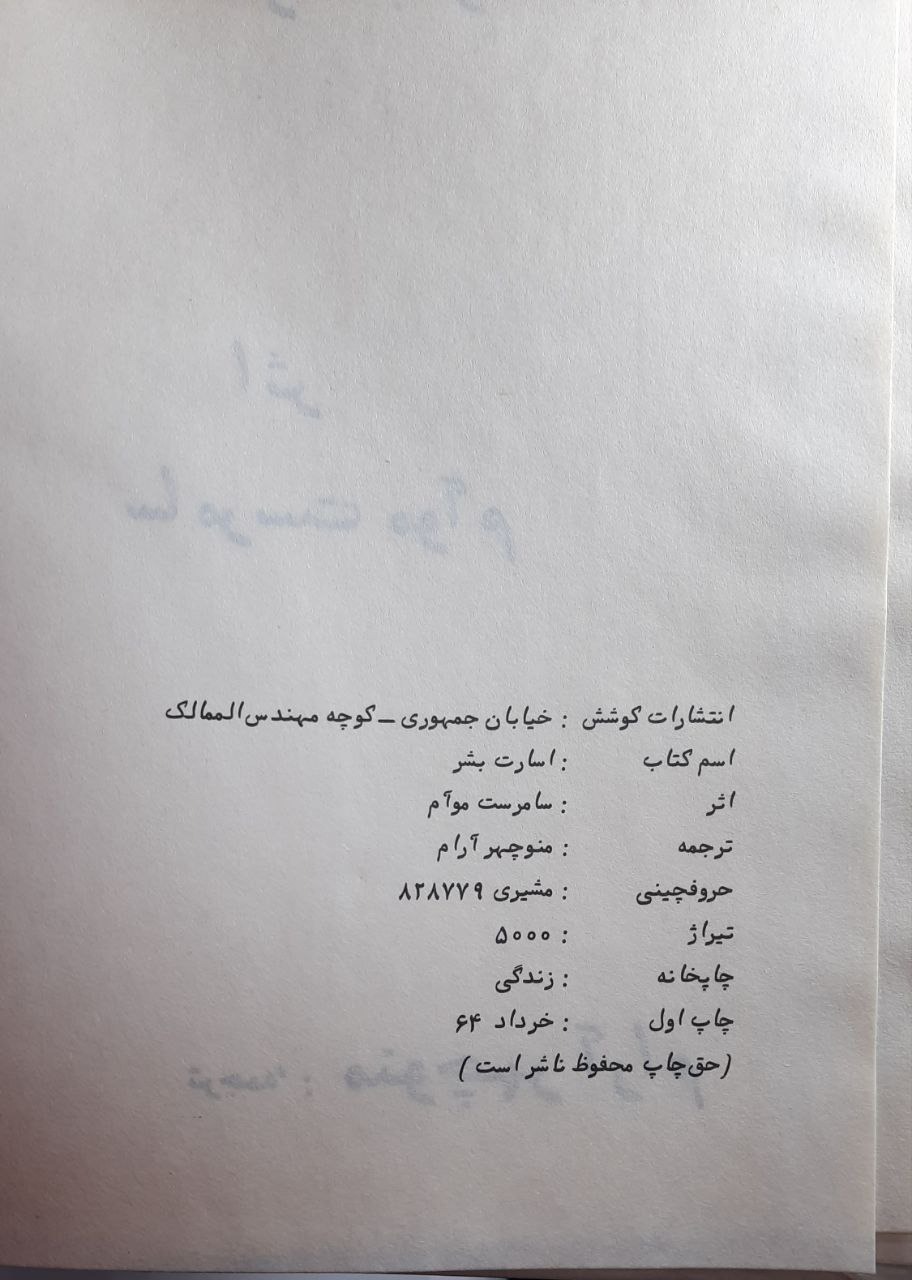 انتشارات کوشش : خیابان جمهوری ـ کوچه مهندس‌الممالک
اسم کتاب : اسارت بشر
اثر : سامرست موآم
ترجمه : منوچهر آرام
حروفچینی : مشیری ۸۲۸۷۷۹
تیراژ : ۵۰۰۰
چاپخانه : زندگی
چاپ اول : خرداد ۶۴
(حق چاپ محفوظ ناشر است)